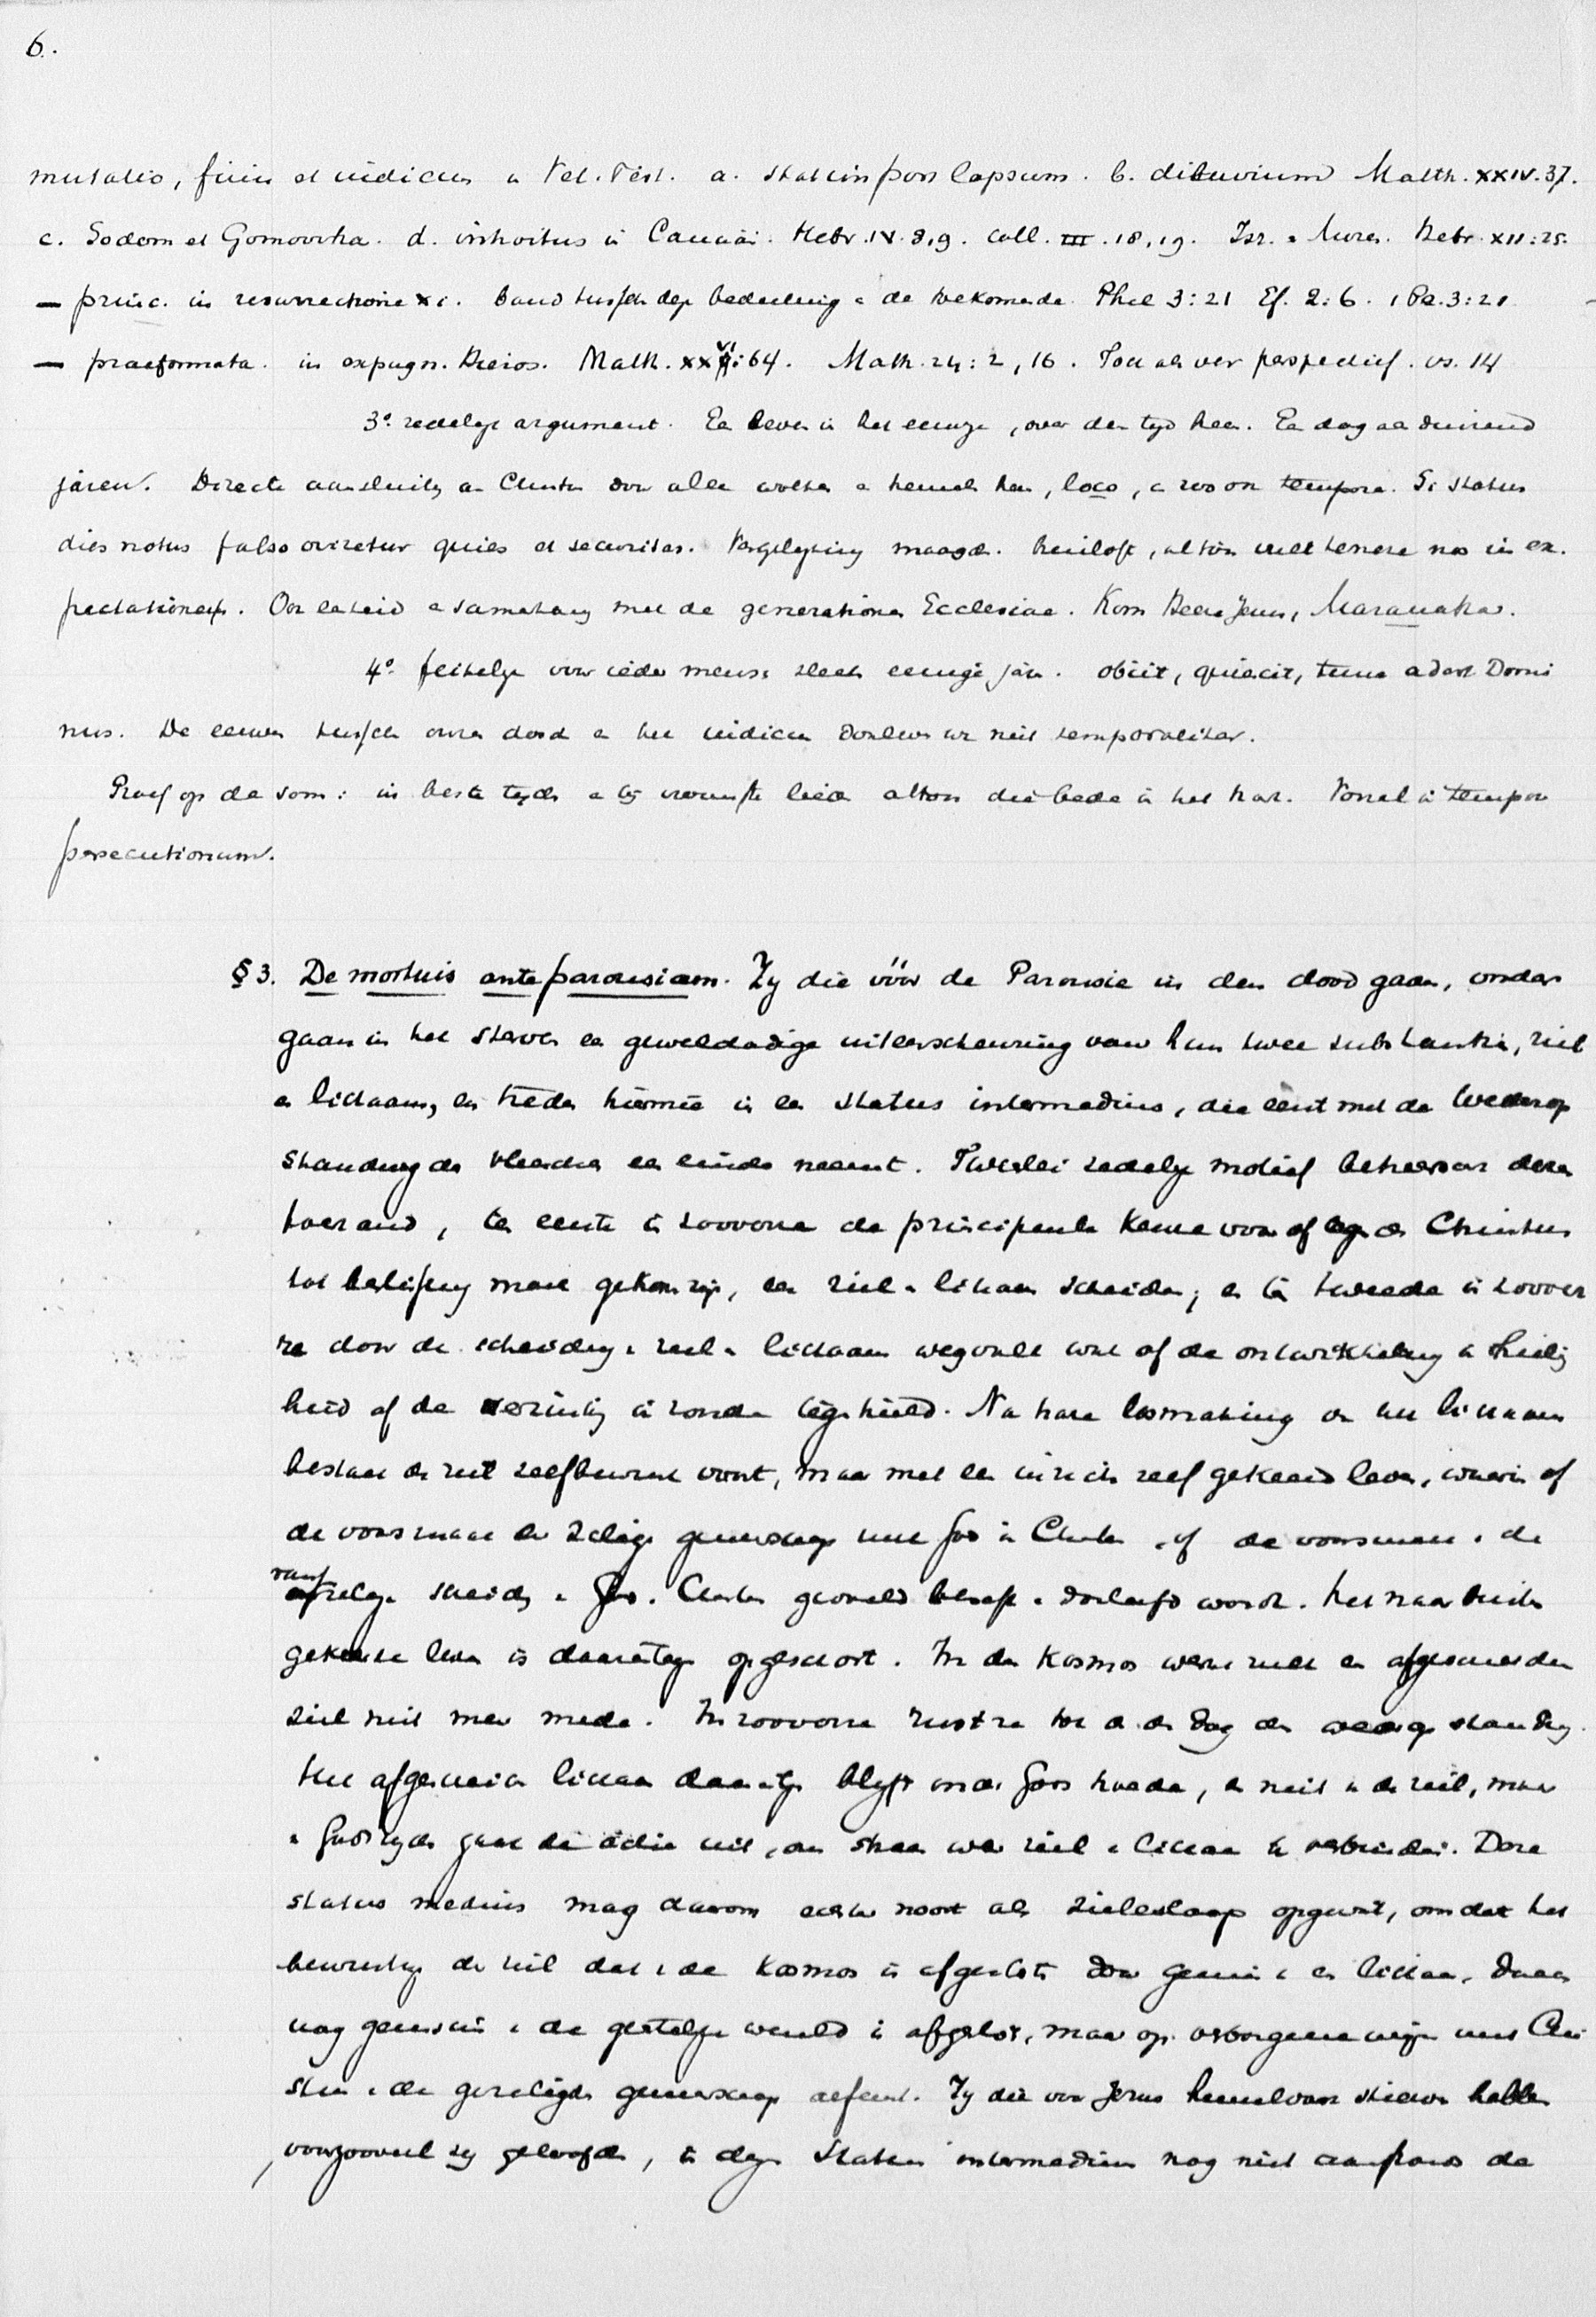 6.
mutatio, finis et iudicium in Vet. Test. a. statim post lapsum. b. diluvium Matth. XXIV. 37.
c. Sodom et Gomorrha. d. introitus in Canaän. Hebr. IV. 8,9. coll. III. 18,19. Isr. Hebr. XII:25.
— princ. in resurrectione Xi. band tusschen deze bedeeling en de toekomende. Phil 3:21 Ef. 2:6. 1 Pe. 3:21
— praeformata. in expugn. Hieros. Matth. XXVI:64. Math. 24:2, 16. Toch als ver perspectief. vs. 14
3º. zedelijk argument. Een leven in het eeuwige, over den tijd heen. Een dag als duizend
jaren. Directe aansluiting aan Christus door alle wolken en hemelen heen, loco, en zoo ook tempore. Si status
dies notus falso oriretur quies et securitas. Vergelijking maagd. bruiloft, altoos velle tenere nos in ex-
pectationem. Ook eenheid en samenhang met de generationes Ecclesiae. Kom Heere Jezus, Maranatha.
4º. feitelijk voor ieder mensch slechts eenige jaren. obiit, quiescit, tunc adest Domi
nus. De eeuwen tusschen onzen dood en het iudicium doorleven we niet temporaliter.
Proef op de som: in beste tijden en bij vroomste lieden altoos die bede in het hart. Vooral in tempore
persecutionum.
§ 3. De mortuis ante parousiam. Zy die vóór de Parousie in den dood gaan, onder
gaan in het sterven een geweldadige uiteenscheuring van hun twee substantiën, ziel
en lichaam, en treden hiermeê in een status intermedius, die eerst met de Wederop
standing des vleesches een einde neemt. Tweeërlei zedelijk motief beheerscht dezen
toestand, ten eerste in zooverre de principeele keuze voor of tegen den Christus
tot beslissing moet gekomen zijn, eer ziel en lichaam scheiden; en ten tweede in zoover
re door de scheiding van ziel en lichaam wegvalt wat of de ontwikkeling in heilig
heid of de verzinking in zonde tegenhield. Na hare losmaking van het lichaam
bestaat de ziel zelfbewust voort, maar met een in zich zelf gekeerd leven, waarin of
de voorsmaak der zalige gemeenschap met God in Christus, of de voorsmaak van de
rampzalige scheiding van God en Christus gevoeld, beseft en doorleefd wordt. Het naar buiten
gekeerde leven is daarentegen opgeschort. In den Kosmos werkt zulk een afgescheiden
ziel niet meer mede. In zooverre rust ze tot aan den dag der wederopstanding.
Het afgescheiden lichaam daarentegen blijft onder Gods hoede, en niet van de ziel, maar
van Godszijde gaat de actie uit, om straks weer ziel en lichaam te verbinden. Deze
status medius mag daarom echter nooit als zieleslaap opgevat, omdat het
bewustzijn der ziel dat van den Kosmos is afgesloten door gemis van een lichaam, daarom
nog geenszins van de geestelijke wereld is afgesloten, maar op verborgene wijze met Chri
stus en de gezaligden gemeenschap oefent. Zy die voor Jezus hemelvaart stierven hebben
, voorzooveel zij geloofden, in dezen Status intermedius nog niet aanstonds de